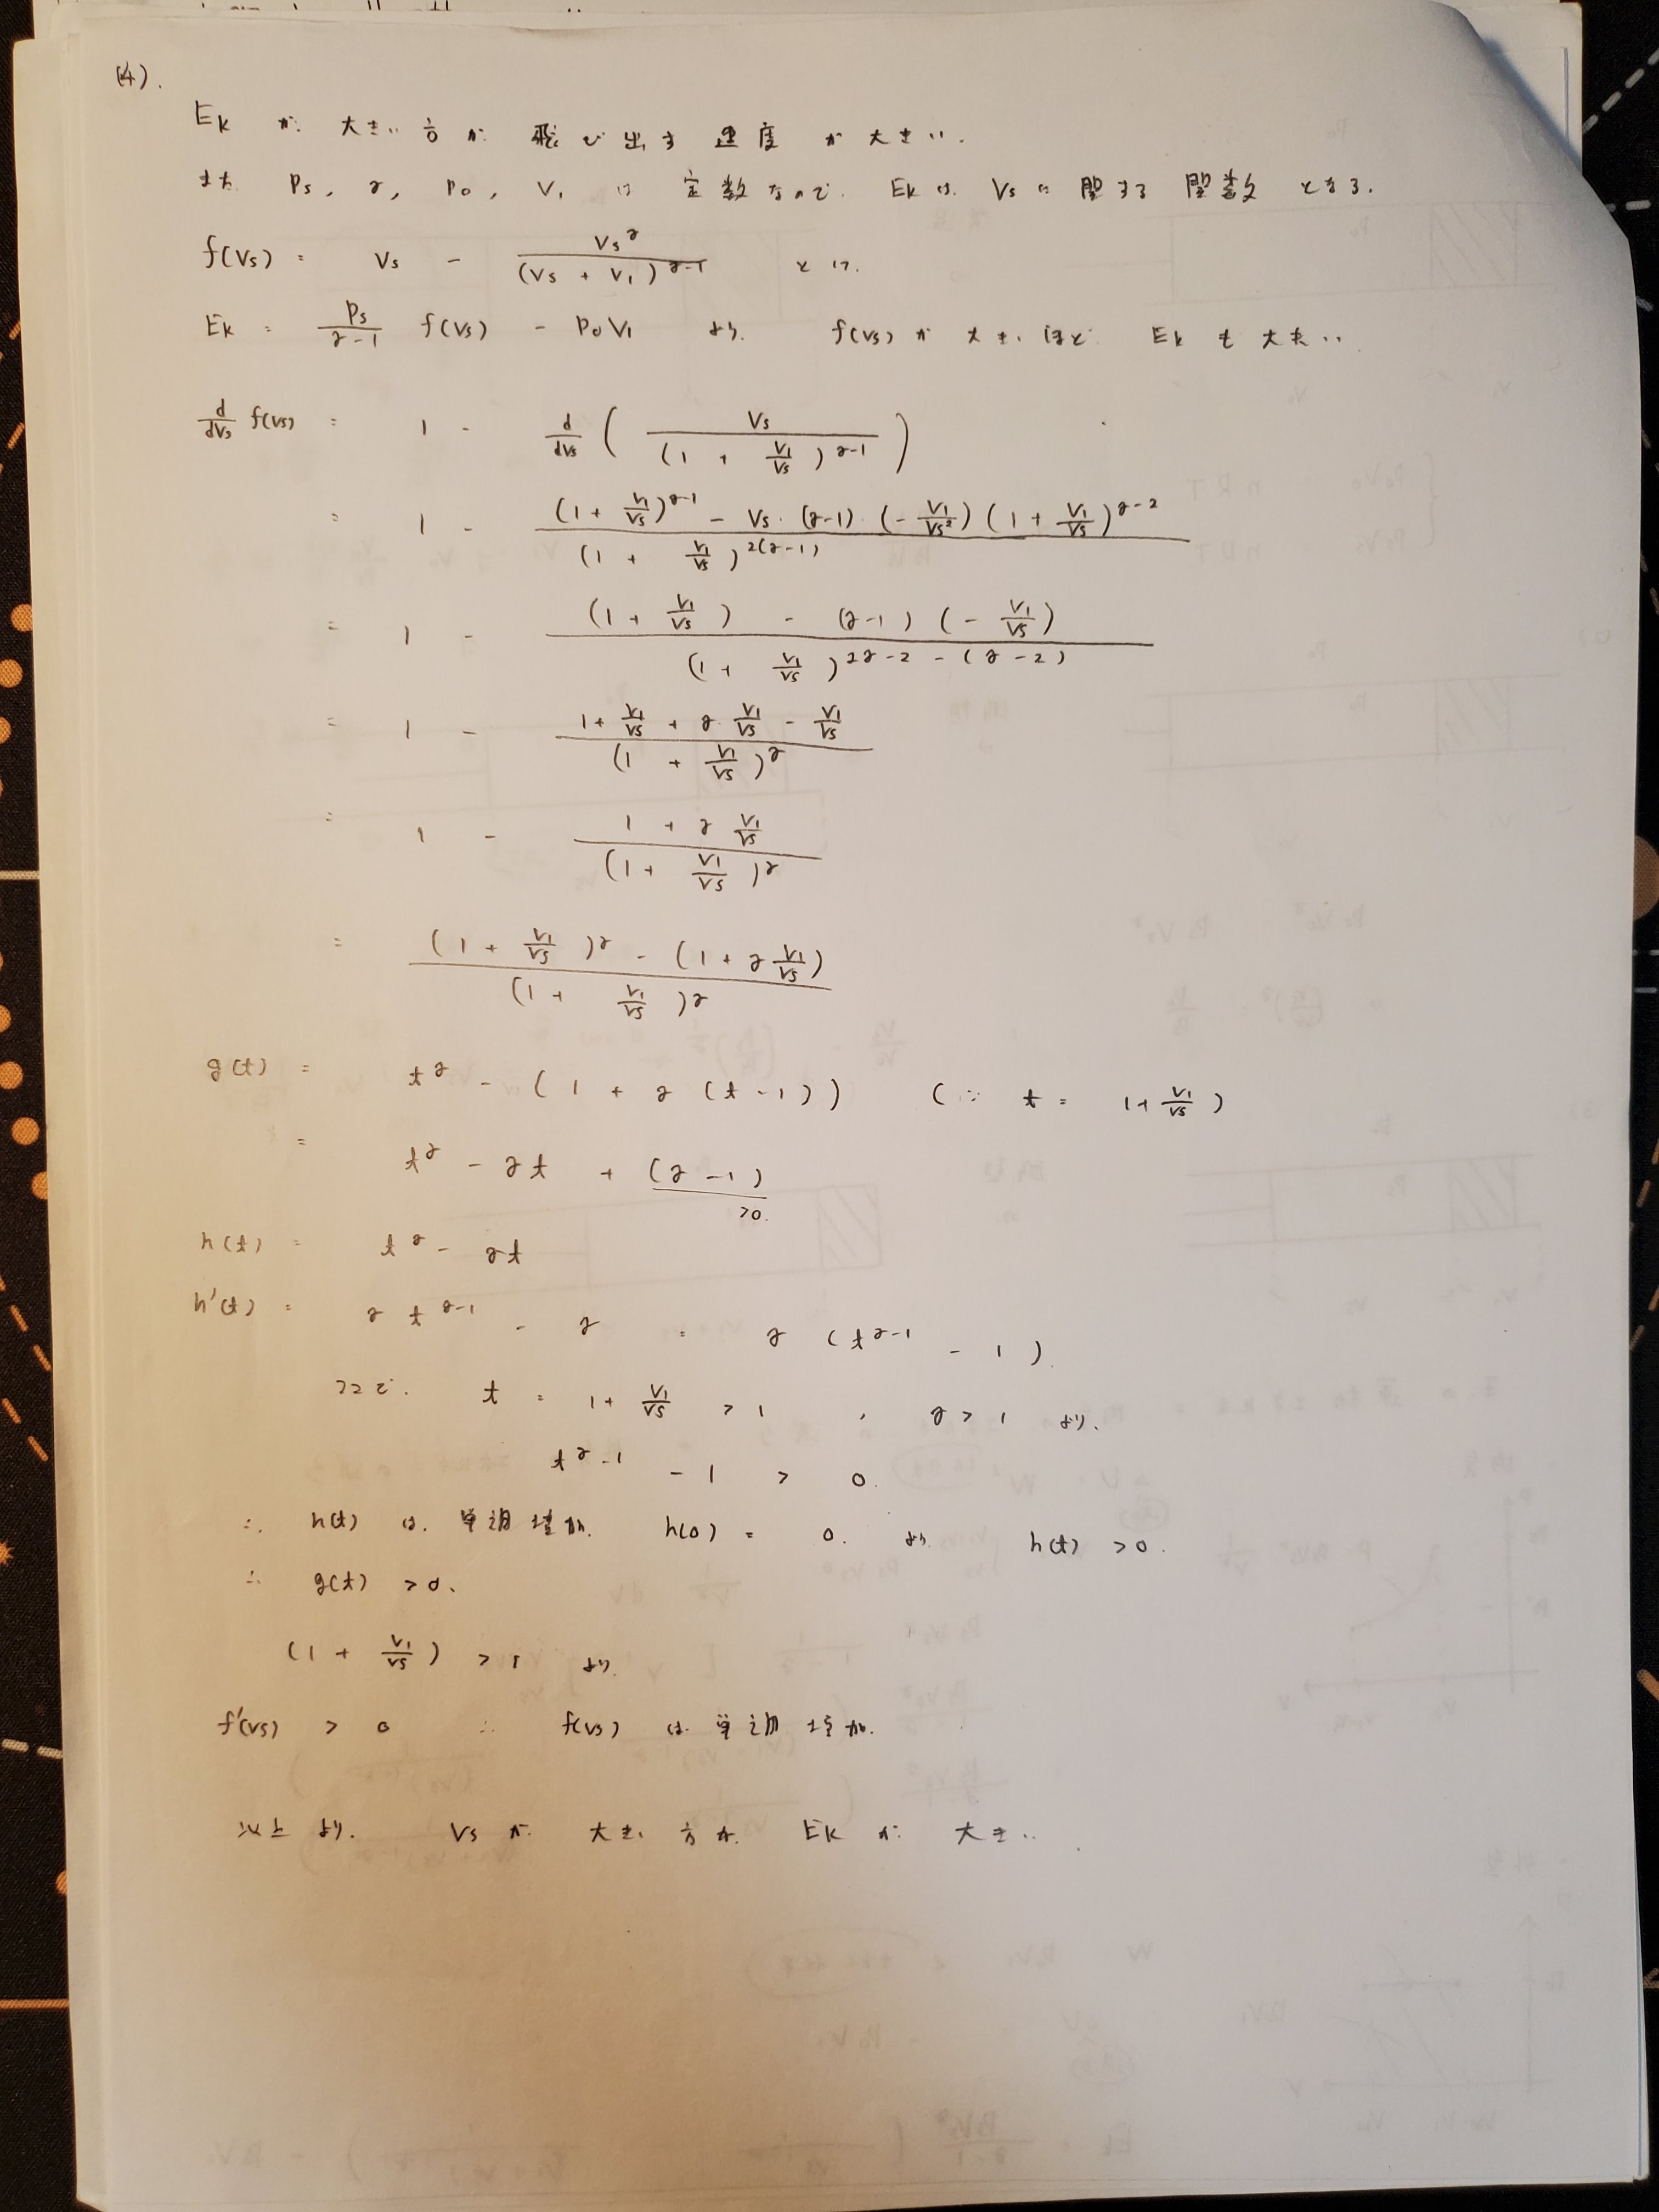 (4).
Ek が 大きい 方が 飛び出す 速度 が 大きい.
また Ps, γ, P0, V1 は 定数なので. Ekは Vs に 関する 関数 となる.
f(Vs) = Vs - Vs^γ / (Vs + V1)^(γ-1) とけ.
Ek = Ps/(γ-1) f(Vs) - P0V1 より. f(Vs) が 大きいほど Ek も 大きい.
d/dVs f(Vs) = 1 - d/dVs ( Vs / (1 + V1/Vs)^(γ-1) )
= 1 - ((1 + V1/Vs)^(γ-1) - Vs・(γ-1)・(-V1/Vs²)(1 + V1/Vs)^(γ-2)) / (1 + V1/Vs)^(2(γ-1))
= 1 - ((1 + V1/Vs) - (γ-1)(-V1/Vs)) / (1 + V1/Vs)^(2γ-2-(γ-2))
= 1 - (1 + V1/Vs + γ・V1/Vs - V1/Vs) / (1 + V1/Vs)^γ
= 1 - (1 + γ V1/Vs) / (1 + V1/Vs)^γ
= ((1 + V1/Vs)^γ - (1 + γ V1/Vs)) / (1 + V1/Vs)^γ
g(t) = t^γ - (1 + γ(t-1)) (∵ t = 1 + V1/Vs)
= t^γ - γt + (γ-1)
>0.
h(t) = t^γ - γt
h'(t) = γ t^(γ-1) - γ = γ(t^(γ-1) - 1).
ここで. t = 1 + V1/Vs > 1, γ > 1 より.
t^(γ-1) - 1 > 0.
∴ h(t) は 単調増加. h(0) = 0. より h(t) > 0.
∴ g(t) > 0.
(1 + V1/Vs) > 1 より.
f'(Vs) > 0 ∴ f(Vs) は 単調増加.
以上より. Vs が 大きい 方が Ek が 大きい.